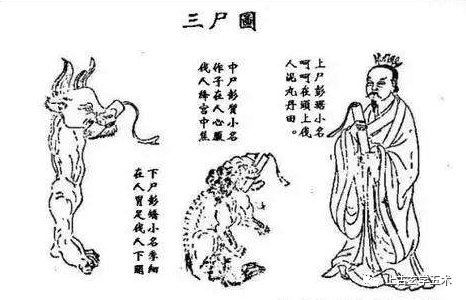 三尸圖
上尸彭琚小名
呵呵在頭上伐
人泥丸丹田。
中尸彭質小名
作子在人心腹
伐人絳宮中焦
下尸彭矯小名季細
在人胃足伐人下關
古玄学五术